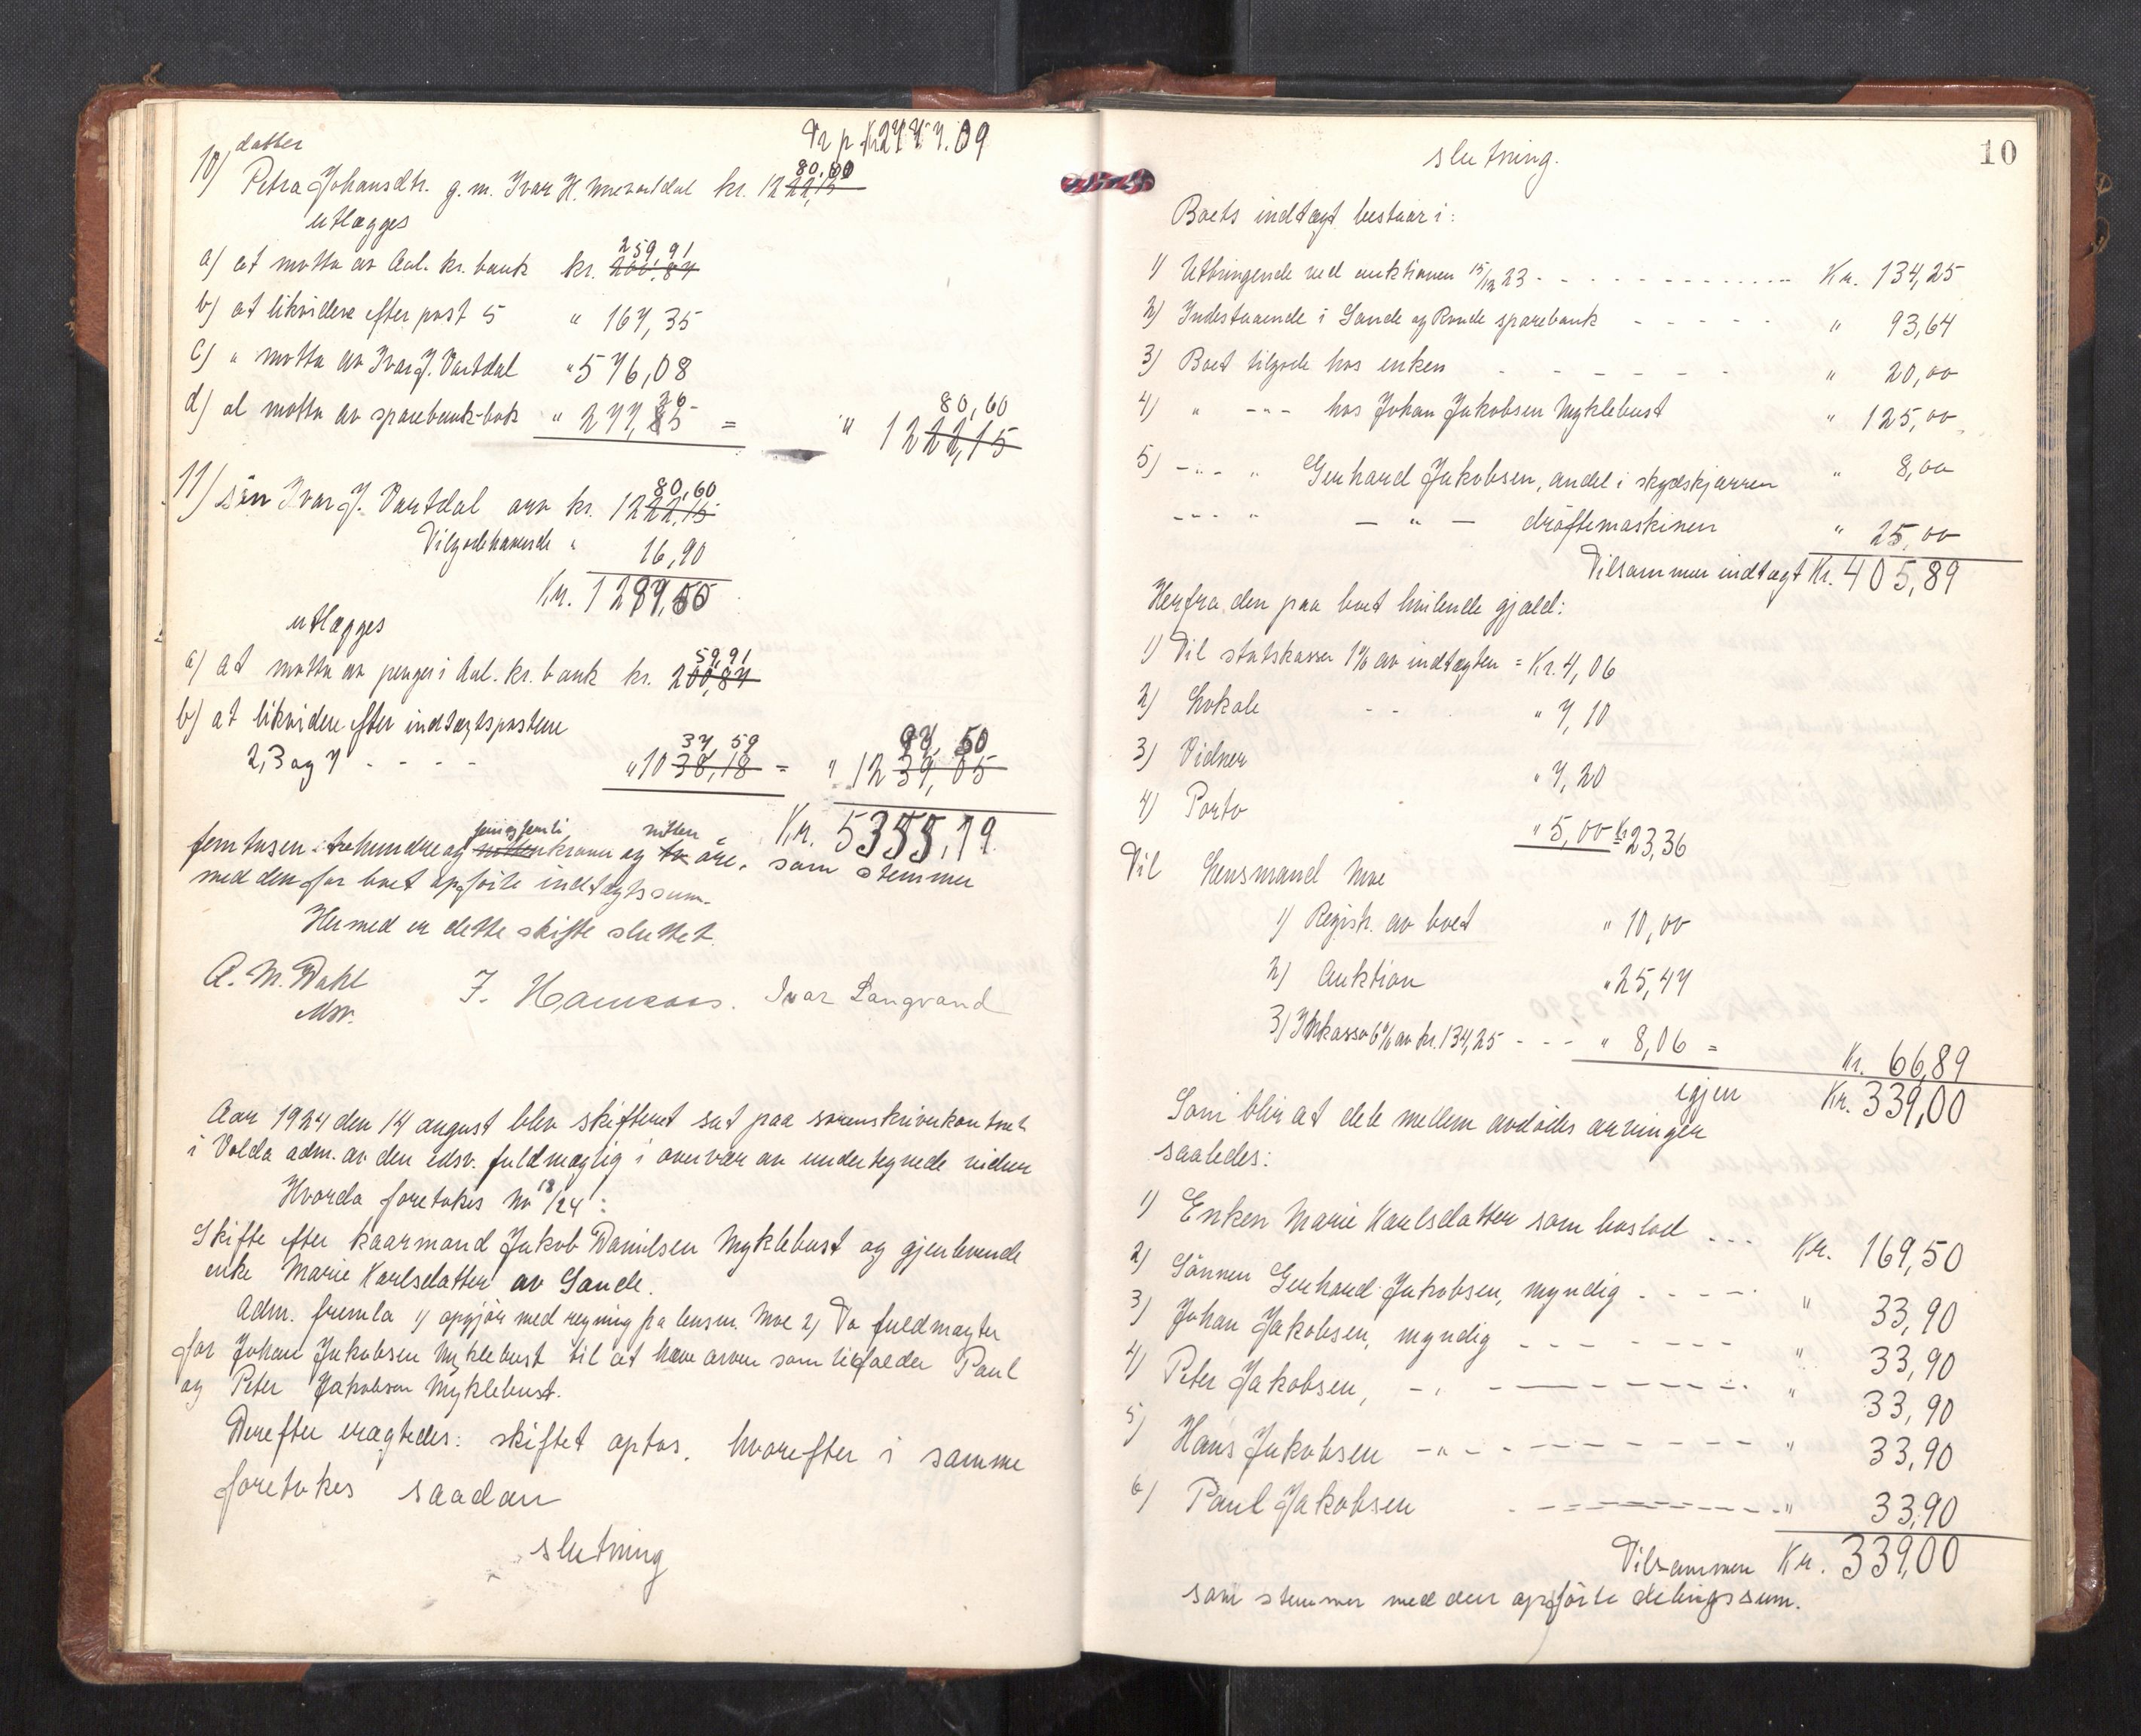 datter
Tr p. Kr. 2777.09
80,60
10) Petra Johansdtr. g. m. Ivar H. Myrvartdal kr. 1222,15
utlægges
259,91
a) at motta av Aal. kr. bank kr. 200,84
b) at likvidere efter post 5 " 167,35
c) " motta av Ivar J. Vartdal " 576,08
26
d) at motta av sparebank-bok " 277,85 =
80,60
" 1222,15
80,60
11) sön Ivar J. Vartdal arv kr. 1222,15
Tilgodehavende " 16,90
Kr. 1297,50
utlægges
59,91
a) at motta av penger i Aal. kr. bank kr. 200,84
b) at likvidere efter indtægtspostene
37 59
97, 50
2, 3 og 7 - - - - " 1038,18 = " 1239,05
Kr. 5355,19
femogfemti nitten
femtusen trehundre og nitten kroner og to öre, som stemmer
med den for boet opförte indtægtssum.
Hermed er dette skifte sluttet.
A. M. Dahl
edsv.
J. Hamsaas. Ivar Langvand
Aar 1924 den 14 august blev skifteret sat paa sorenskriverkontoret
i Volda adm. av den edsv. fuldmægtig i overvær av undertegnede vidner
Hvorda foretokes No 18/24:
Skifte efter kaarmand Jakob Danielsen Myklebust og gjenlevende
enke Marie Karlsdatter av Sande.
Adm. fremla 1) opgjör med regning fra lensm. Moe 2) To fuldmagter
for Johan Jakobsen Myklebust til at heve arven som tilfalder Paul
og Peter Jakobsen Myklebust.
Derefter eragtedes: skiftet optas, hvorefter i samme
foretokes saadan
slutning
10
slutning.
Boets indtægt bestaar i:
1) Utbringende ved auktionen 15/12 23 - - - - - - - Kr. 134,25
2) Indestaaende i Sande og Rovde sparebank - - - - - " 93,64
3) Boet tilgode hos enken - - - - - - " 20,00
4) " - " - hos Johan Jakobsen Myklebust " 125,00
5) - " - " Gerhard Jakobsen, andel i skydskjærren " 8,00
- " - " - " - dröftemaskinen " 25,00
Tilsammen indtægt Kr. 405,89
Herfra den paa boet hvilende gjæld:
1) Til statskassen 1% av indtægten = Kr. 4,06
2) Lokale - - " 7,10
3) Vidner " 7,20
4) Porto " 5,00 Kr 23,36
Til Lensmand Moe
1) Registr. av boet " 10,00
2) Auktion " 25,47
3) Inkasso 6% av kr. 134,25 - - - " 8,06 =
Kr. 66,89
igjen Kr. 339,00
Som blir at dele mellem avdödes arvinger
saaledes:
1) Enken Marie Karlsdatter som boslod . . . Kr. 169,50
2) Sönnen Gerhard Jakobsen, myndig - - - - " 33,90
3) Johan Jakobsen, myndig - - - - - - " 33,90
4) Peter Jakobsen, - " - - - - - - - " 33,90
5) Hans Jakobsen - " - - - - - - - " 33,90
6) Paul Jakobsen - - - - - - - - " 33,90
Tilsammen Kr. 339,00
som stemmer med den opförte delingssum.